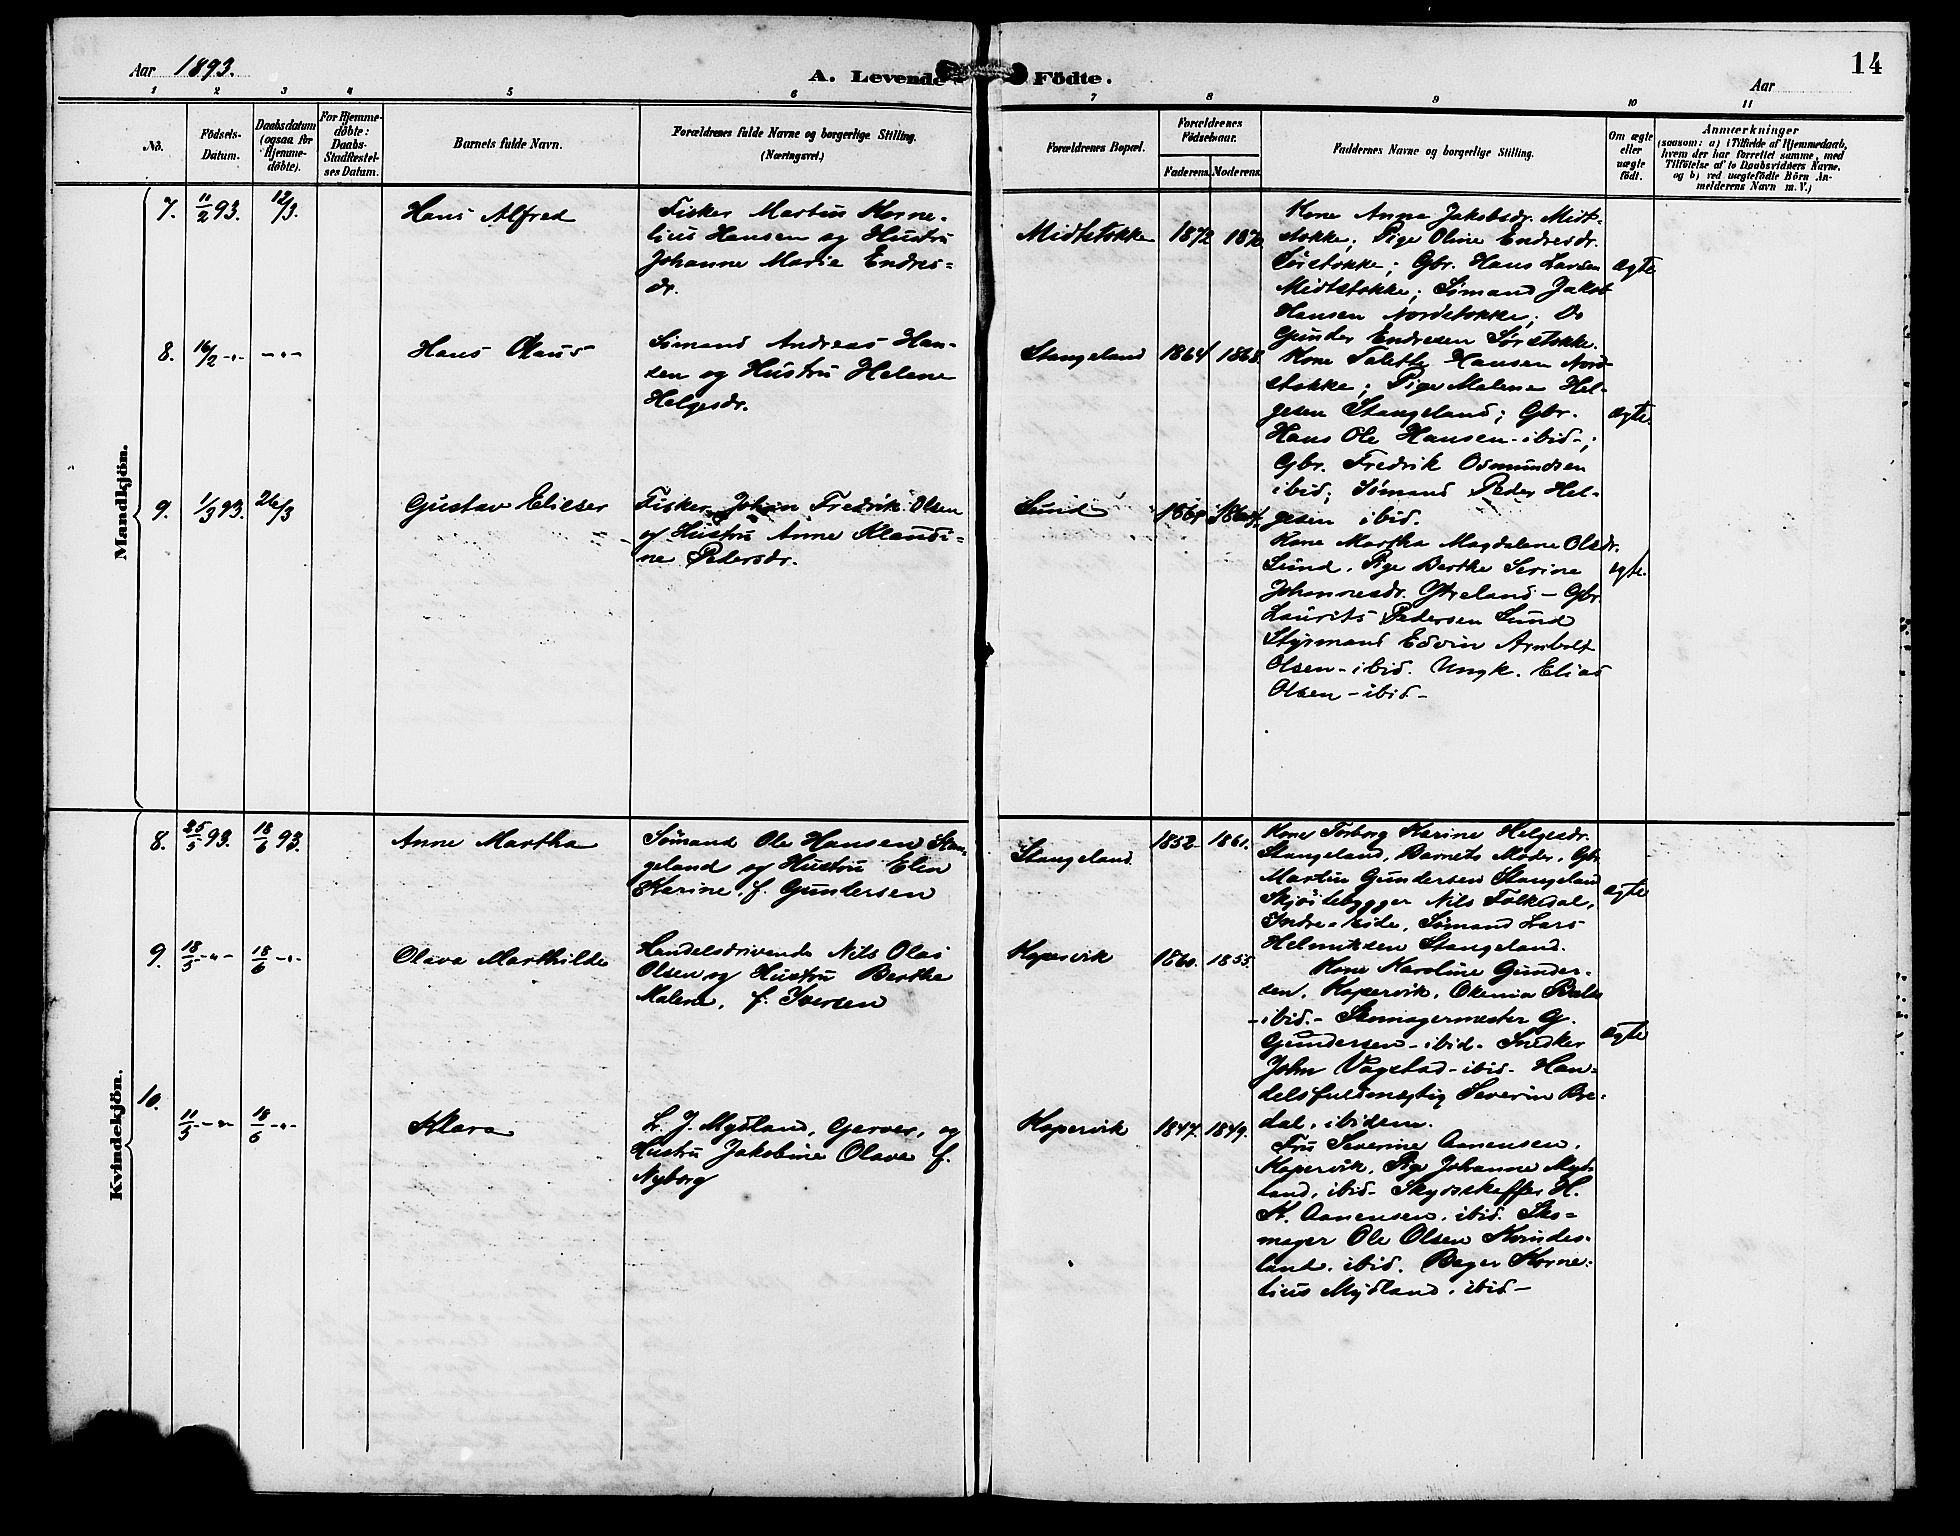 14
Aar 1893.
A. Levende Födte.
Aar
1 2 3 4 5 6 7 8 9 10 11
No.
Födsels-
Datum.
Daabsdatum
(ogsaa for
Hjemme-
döbte).
For Hjemme-
döbte:
Daabs-
Stadfæstel-
ses Datum.
Barnets fulde Navn.
Forældrenes fulde Navne og borgerlige Stilling.
(Næringsvei.)
Forældrenes Bopæl.
Forældrenes
Födselsaar.
Faderens. Moderens.
Faddernes Navne og borgerlige Stilling.
Om ægte
eller
uægte
født.
Anmærkninger
(saasom: a) i Tilfælde af Hjemmedaab,
hvem der har forrettet samme, med
Tilföielse af to Daabsvidners Navne,
og b) ved uægtefödte Börn An-
melderens Navn m. V.)
Mandkjön.
7. 11/2 93. 12/3.
Hans Alfred
Fisker Martin Korne-
lius Hansen og Hustru
Johanne Marie Endres-
dr.
Midtstokke 1872 1870
Kone Anna Jakobsdr. Midt-
stokke; Pige Oline Endresdr.
Sörstokke; Gbr. Hans Larsen
Midtstokke; Sömand Jakob
Hansen Nordstokke; Do
Gunder Endresen Sörstokke.
ægte
8. 16/2 -"- -"-
Hans Olaus
Sömand Andreas Han-
sen og Hustru Helene
Helgesdr.
Stangeland 1864 1868.
Kone Talette Hansen Nord-
stokke; Pige Malene Hel-
gesen Stangeland; Gbr.
Hans Ole Hansen -ibid-;
Gbr. Fredrik Osmundsen
ibid; Sömand Peder Hel-
gesen ibid.
ægte.
9. 1/3 93. 26/3
Gustav Elieser
Fisker Johan Fredrik Olsen
og Hustru Anne Klaudi-
ne Pedersdr.
Sund
Kone Martha Magdalene Olsdr.
Sund. Pige Berthe Serine
Johannesdr. Ytreland - Gbr.
Laurits Pedersen Sund
Styrmand Edvin Arnholt
Olsen -ibid. Ungk. Elias
Olsen -ibid-
ægte.
Kvindekjön.
8. 25/5 93. 18/6 93.
Anne Martha
Sömand Ole Hansen Stan-
geland og Hustru Elen
Karine f. Gundersen
Stangeland. 1852 1861.
Kone Torborg Karine Helgesdr.
Stangeland, Barnets Moder, Gbr.
Martin Gundersen Stangeland
Skjöitebygger Nils Folkedal,
Indre-Eide, Sömand Lars
Helmiksen Stangeland.
ægte
9. 18/5 -"- 18/6 -"-
Olava Marthilde
Handelsdrivende Nils Olai
Olsen og Hustru Bertha
Malene, f. Iversen
Kopervik 1860. 1855.
Kone Karoline Gunder-
sen, Kopervik,
-ibid.- Skomagermester G.
Gundersen -ibid- Snedker
John Vagstad -ibid- Han-
delsfuldmægtig Severin Bre-
dal, ibidem.
ægte
10. 11/5 -"- 18/6 -"-
Klara
L. J. Mydland, Garver, og
Hustru Jakobine Olava f.
Nyborg
Kopervik 1847. 1849.
Fru Severine Aanensen,
Kopervik, Pige Johanne Myd-
land, ibid- Skydsskaffer H.
K. Aanensen, ibid. Sko-
mager Ole Olsen Kvindes-
land, ibid. Bager Korne-
lius Mydland, ibid-